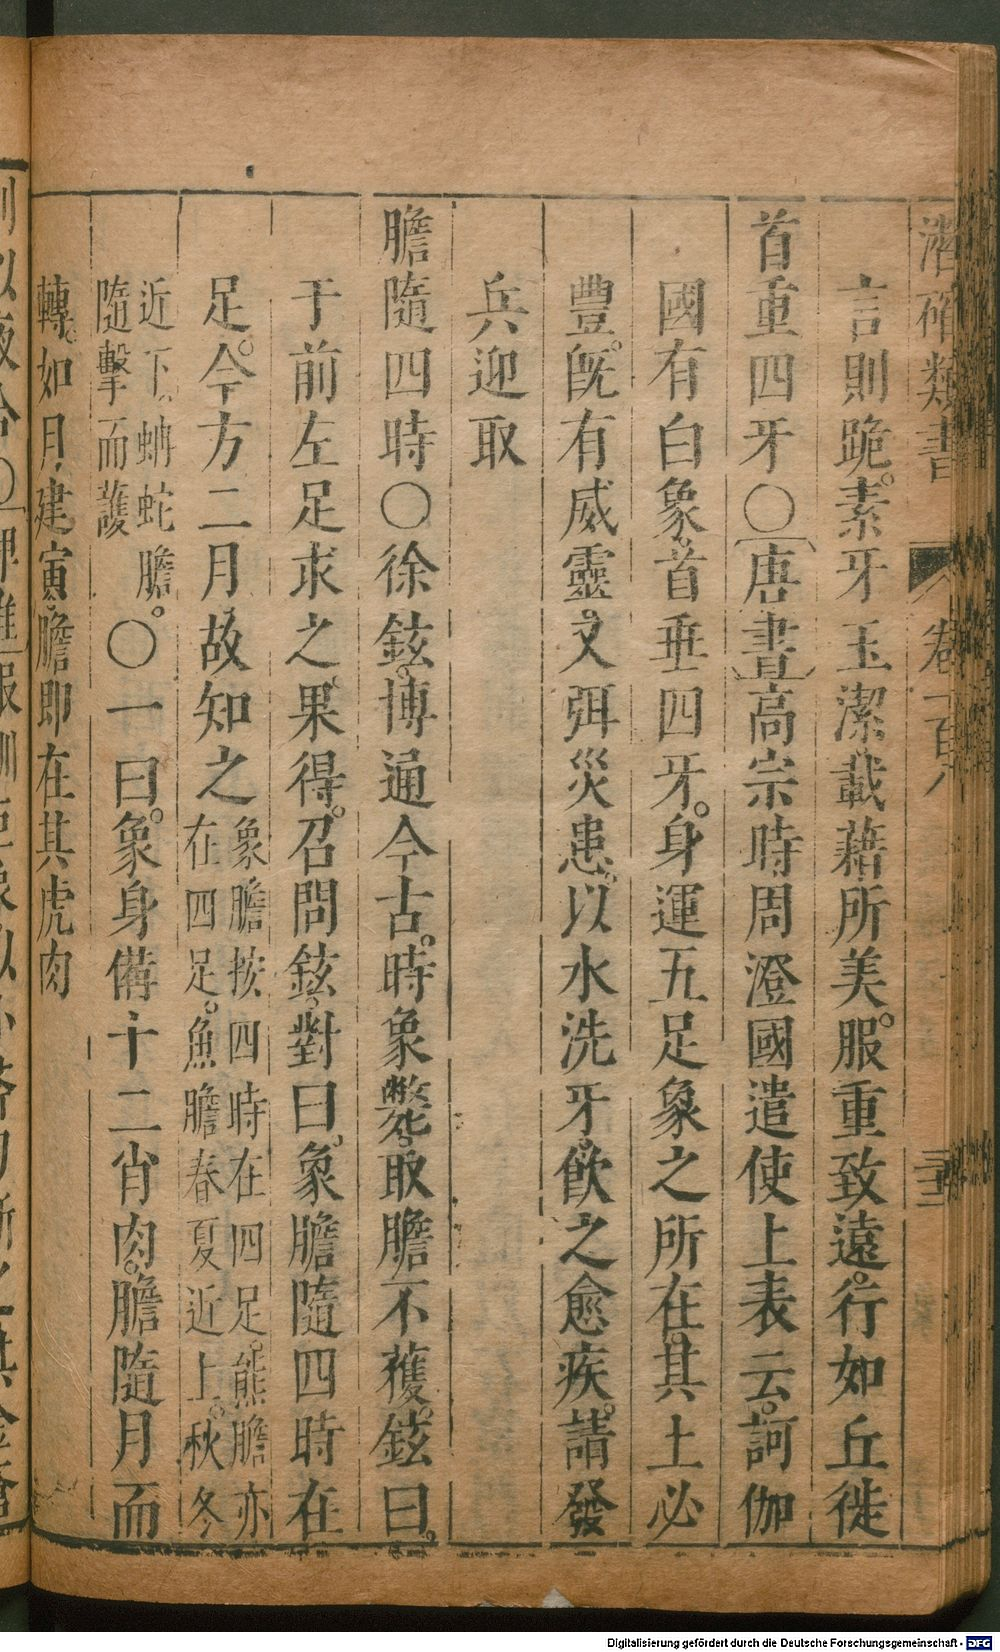 潛確類書 卷一百八 三十三
言則跪素牙玉潔載藉所美服重致遠行如丘徙
首重四牙○唐書高宗時周澄國遣使上表云訶伽
國有白象首垂四牙身運五足象之所在其土必
豐旣有威靈又弭災患以水洗牙飲之愈疾請發
兵迎取
膽隨四時○徐鉉博通今古時象斃取膽不獲鉉曰
于前左足求之果得召問鉉對曰象膽隨四時在
足今方二月故知之
象膽按四時在四足熊膽亦
在四足魚膽春夏近上秋冬
近下蚺蛇膽
隨擊而護
○一曰象身備十二肖肉膽隨月而
轉如月建寅膽即在其虎肉
Digitalisierung gefördert durch die Deutsche Forschungsgemeinschaft - DFG